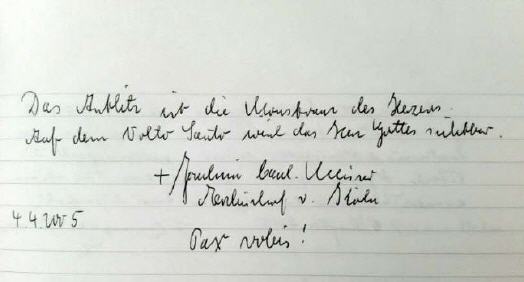 Das Antlitz ist die Monstranz des Herzens.
Auf dem Volto Santo wird das Herz Gottes sichtbar.
+ Joachim Card. Meisner
Erzbischof v. Köln
4 4 2005
Pax vobis!